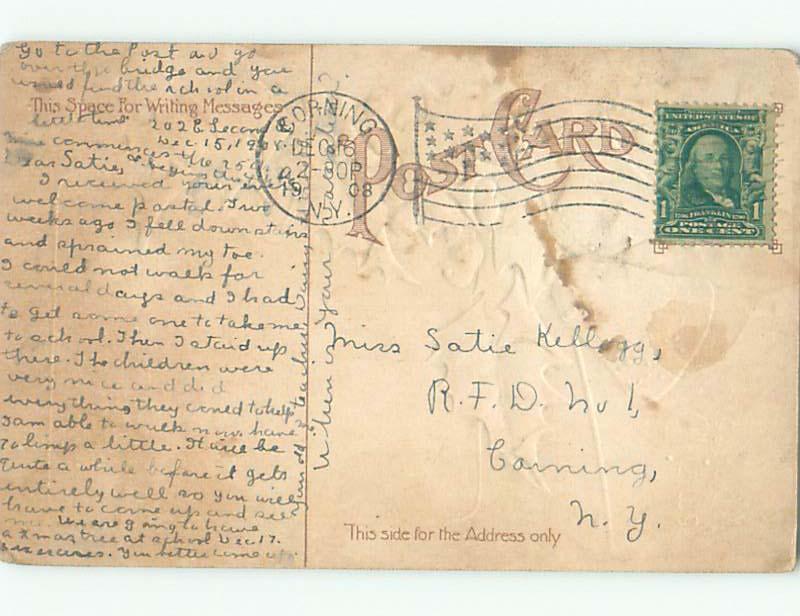 Go to the Post and go
over the bridge and you
will find the school in a
little time
This Space For Writing Messages
202 E. Second
Dec. 15, 1908.
commences the 25
Dear Satie,
I received your
welcome postal. Two
weeks ago I fell down stairs
and sprained my toe.
I could not walk for
several days and I had
to get some one to take me
to school. Then I staid up
there. The children were
very nice and did
everything they could to help
I am able to walk now, have
to limp a little. It will be
quite a while before it gets
entirely well so you will
have to come up and see
me. We are going to have
a Xmas tree at school Dec. 17.
exercises. You better come up.
When is your
CORNING
DEC
2-30P
1908
N.Y.
POST CARD
UNITED STATES OF
AMERICA
FRANKLIN
1 1
POSTAGE
ONE CENT
Miss Satie Kellogg,
R.F.D. No 1,
Corning,
N.Y.
This side for the Address only